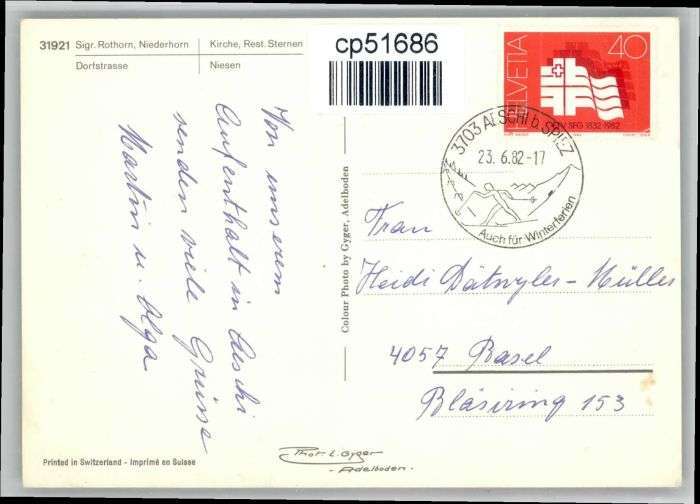 31921 Sigr. Rothorn, Niederhorn | Kirche, Rest. Sternen
Dorfstrasse | Niesen
cp51686
HELVETIA 40
SFV SFG 1832-1982
3703 AESCHI b. SPIEZ
23. 6.82-17
Auch für Winterferien
Von unserem
Aufenthalt in Aeschi
senden viele Grüsse
Martin u. Olga
Colour Photo by Gyger, Adelboden
Frau
Heidi Dätwyler-Müller
4057 Basel
Bläsiring 153
Printed in Switzerland - Imprimé en Suisse
Phot. E. Gyger
- Adelboden -